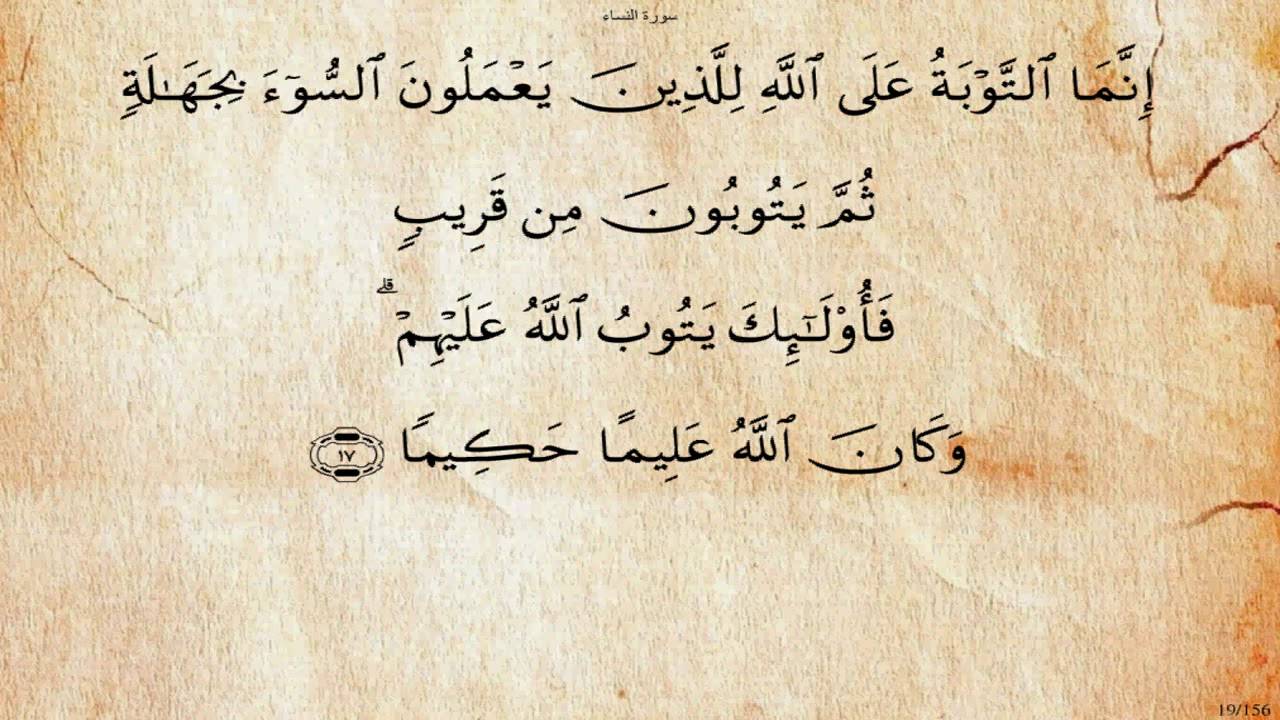 سورة النساء
إِنَّمَا ٱلتَّوْبَةُ عَلَى ٱللَّهِ لِلَّذِينَ يَعْمَلُونَ ٱلسُّوٓءَ بِجَهَـٰلَةٍ
ثُمَّ يَتُوبُونَ مِن قَرِيبٍ
فَأُو۟لَـٰٓئِكَ يَتُوبُ ٱللَّهُ عَلَيْهِمْ ۗ
وَكَانَ ٱللَّهُ عَلِيمًا حَكِيمًا ١٧
19/156